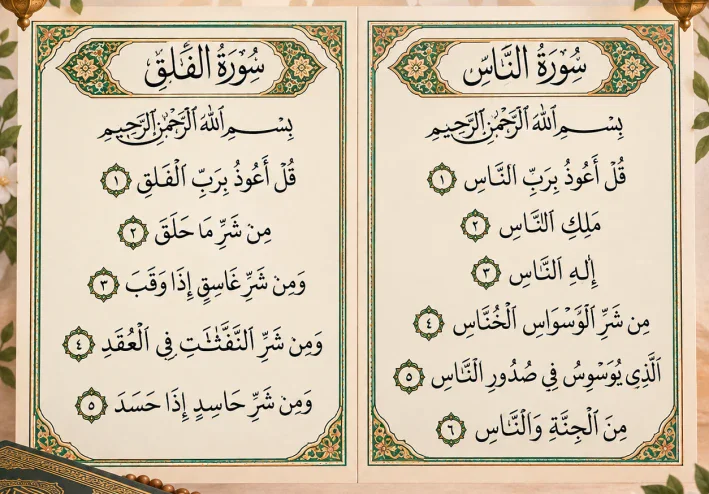 سُورَةُ النَّاسِ
بِسْمِ اللَّهِ الرَّحْمَٰنِ الرَّحِيمِ
قُلْ أَعُوذُ بِرَبِّ النَّاسِ ١
مَلِكِ النَّاسِ ٢
إِلَٰهِ النَّاسِ ٣
مِن شَرِّ الْوَسْوَاسِ الْخُنَّاسِ ٤
الَّذِي يُوَسْوِسُ فِي صُدُورِ النَّاسِ ٥
مِنَ الْجِنَّةِ وَالنَّاسِ ٦
سُورَةُ الْفَلَقِ
بِسْمِ اللَّهِ الرَّحْمَٰنِ الرَّحِيمِ
قُلْ أَعُوذُ بِرَبِّ الْفَلَقِ ١
مِن شَرِّ مَا حَلَقَ ٢
وَمِن شَرِّ غَاسِقٍ إِذَا وَقَبَ ٣
وَمِن شَرِّ النَّفَّثَٰتِ فِي الْعُقَدِ ٤
وَمِن شَرِّ حَاسِدٍ إِذَا حَسَدَ ٥